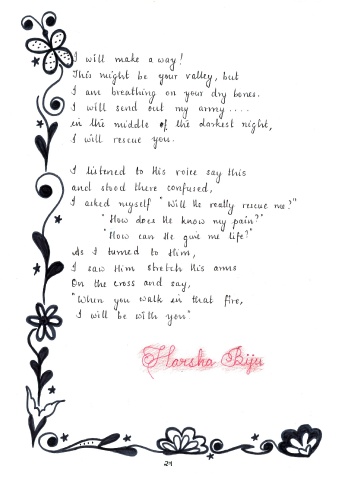 I will make a way!
This might be your valley, but
I am breathing on your dry bones.
I will send out my army ....
in the middle of the darkest night,
I will rescue you.
I listened to His voice say this
and stood there confused,
I asked myself "Will He really rescue me?"
"How does He know my pain?"
"How can He give me life?"
As I turned to Him,
I saw Him stretch His arms
On the cross and say,
"When you walk in that fire,
I will be with you"
Harsha Biju
24